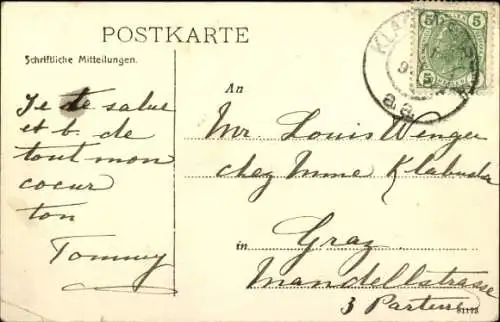 POSTKARTE
Schriftliche Mitteilungen.
An
Je te salue
et b. de
tout mon
coeur
ton
Tommy
Mr. Louis Wenger
chez Mme Klabuder
in Graz
Mandellstrasse
3 Parterre
5 5
5 5
a.a.